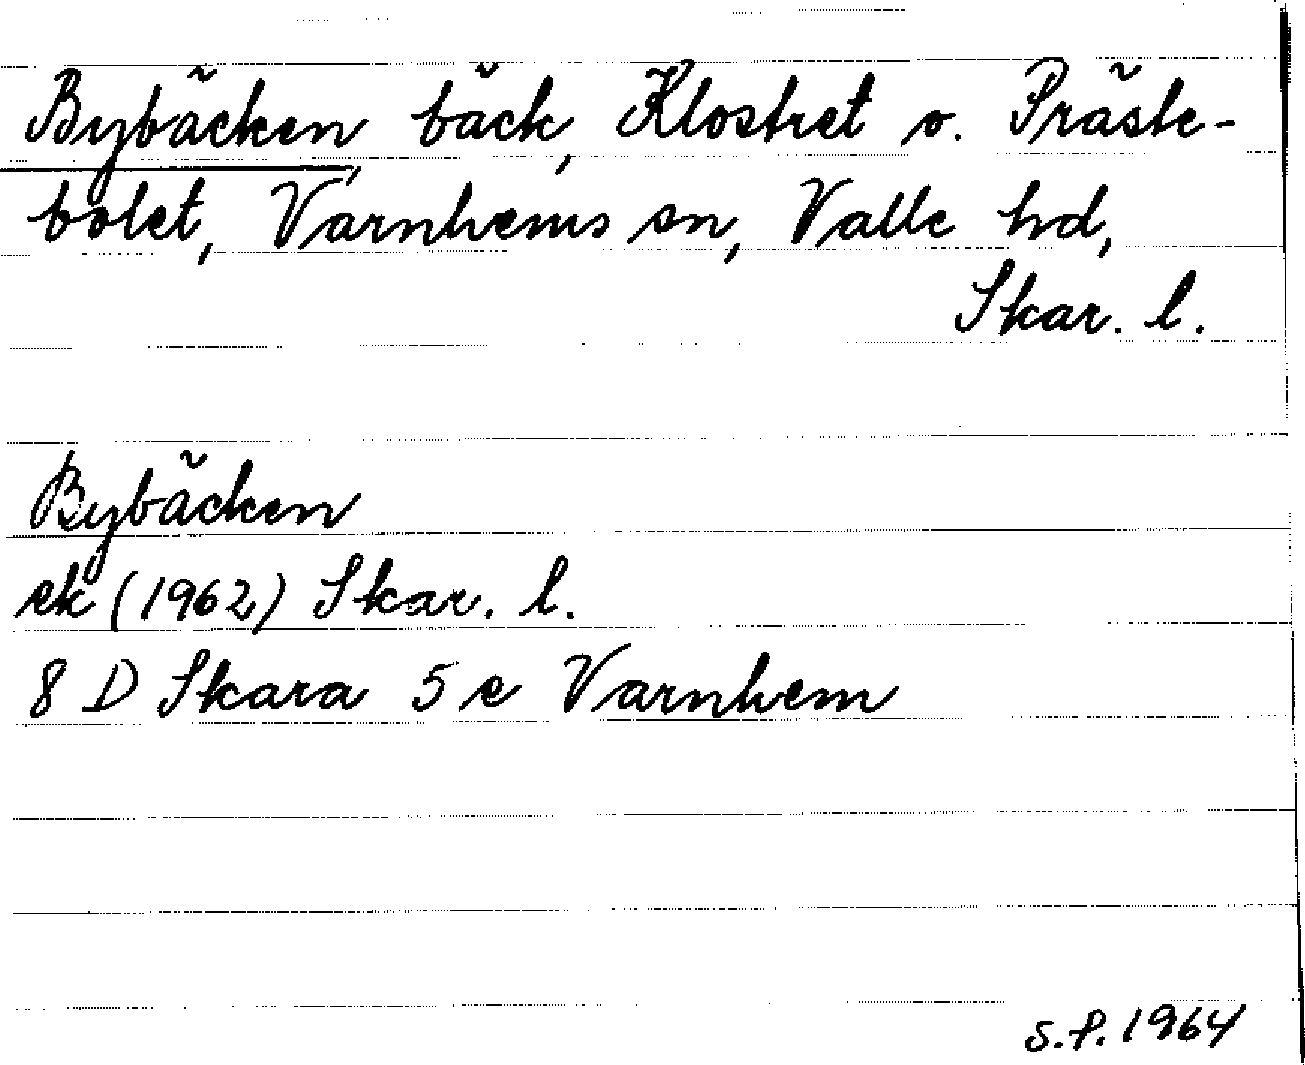 Bybäcken, bäck, Klostret o. Präste-
bolet, Varnhems sn, Valle hd,
Skar. l.
Bybäcken
ek (1962) Skar. l.
8 D Skara 5 e Varnhem
S.P. 1964